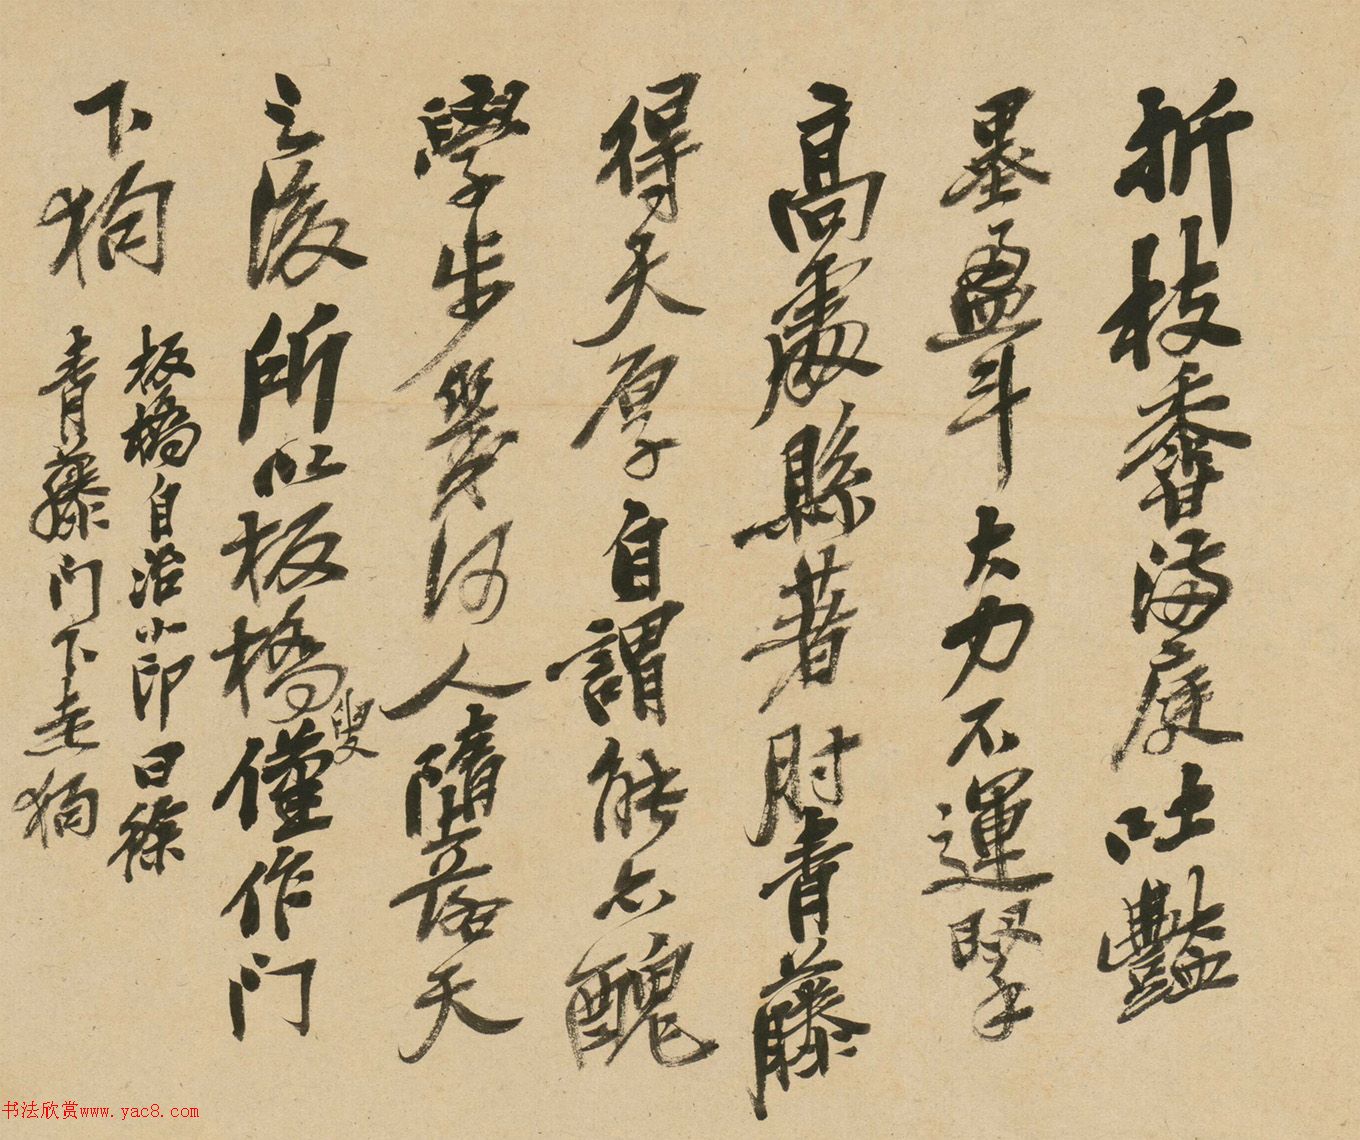 折枝香滿庭吐豔
墨盈斗大力不運掔
高處懸著肘青藤
得天厚自謂能亦醜
學步幾何人墮落天
之後所以板橋叟僅作門
下狗
板橋自治小印曰徐
青藤門下走狗
书法欣赏www.yac8.com